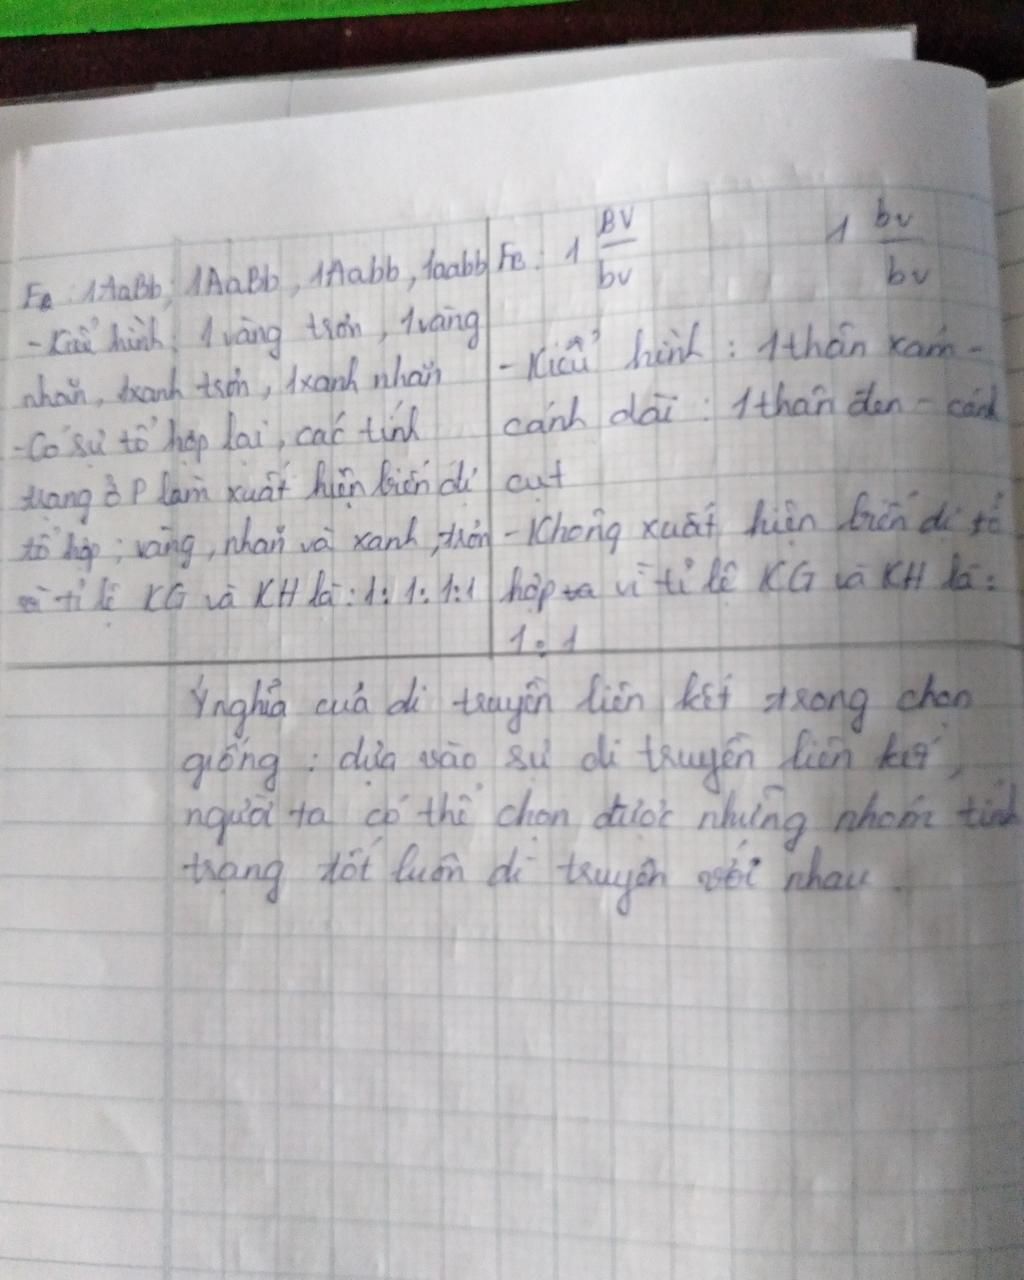 F_B: 1AaBb, 1AaBb, 1Aabb, 1aabb
- Kiểu hình: 1 vàng trơn, 1 vàng
nhăn, 1xanh trơn, 1xanh nhăn
- Có sự tổ hợp lại, các tính
trạng ở P làm xuất hiện biến dị
tổ hợp: vàng, nhăn và xanh, trơn
tỉ lệ KG và KH là: 1: 1: 1:1
F_B: 1 BV/bv 1 bv/bv
- Kiểu hình: 1 thân xám -
cánh dài: 1 thân đen - cánh
cụt
- Không xuất hiện biến dị tổ
hợp vì tỉ lệ KG và KH là:
1: 1
Ý nghĩa của di truyền liên kết trong chọn
giống: dựa vào sự di truyền liên kết,
người ta có thể chọn được những nhóm tính
trạng tốt luôn di truyền với nhau.